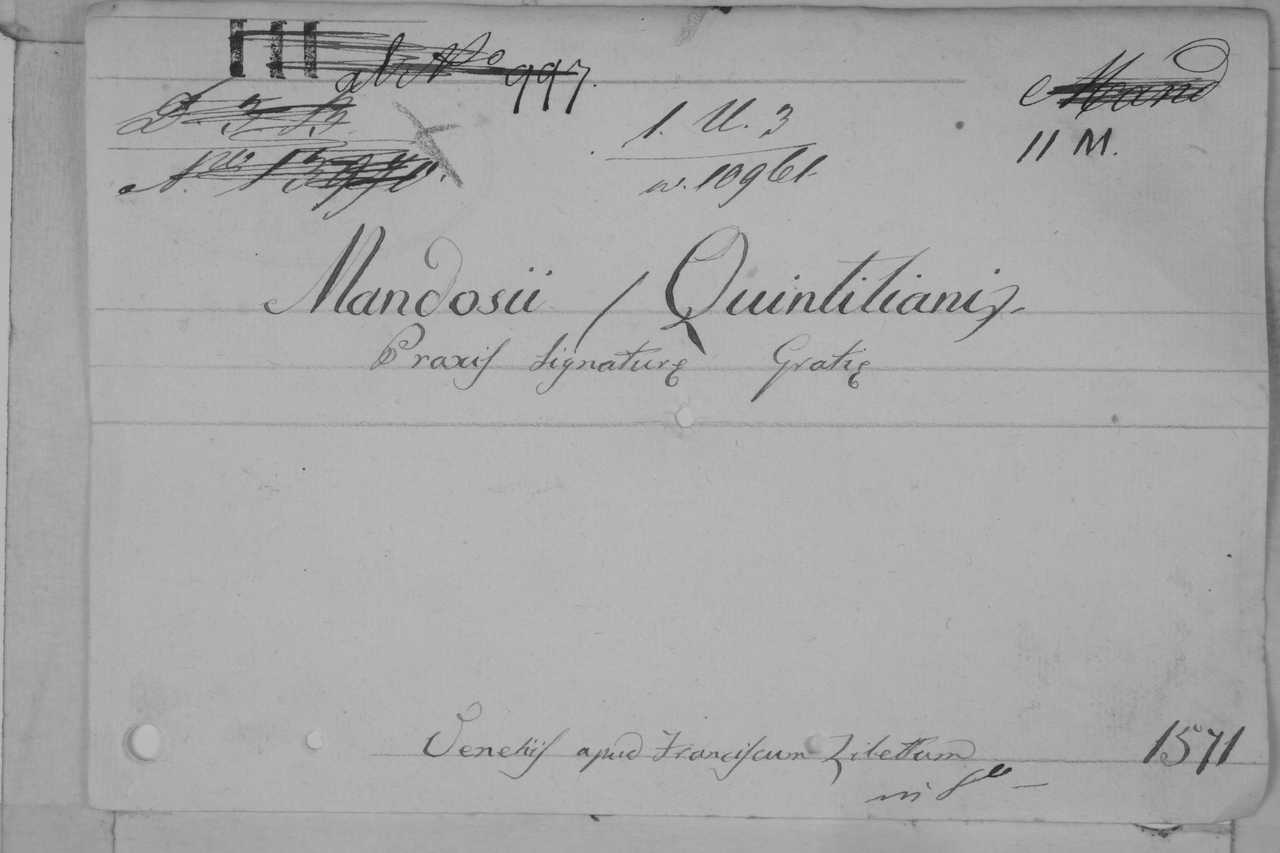 III
N.º 997.
Mand
D. 3. 13
11 M.
1. U. 3
w. 10961.
Mandosii / Quintiliani,
Praxis Signaturę Gratię
Venetiis apud Franciscum Zilettum 1571
in 8º